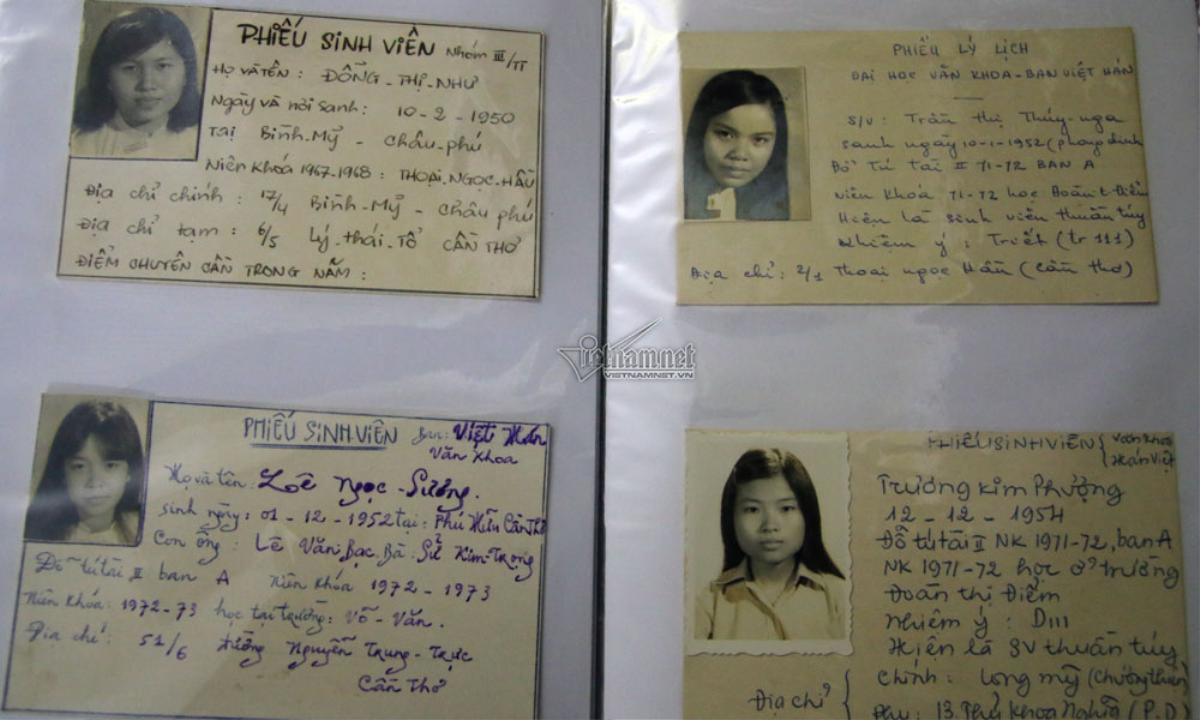 PHIẾU SINH VIÊN Nhóm III/TT
HỌ VÀ TÊN : ĐỔNG-THỊ-NHƯ
Ngày và nơi sanh : 10-2-1950
Tại Bình-Mỹ - Châu-phú
Niên khóa 1967-1968 : THOẠI.NGỌC.HẦU
Địa chỉ chính : 17/4 Bình-Mỹ - Châu phú
Địa chỉ tạm : 6/5 Lý.thái.Tổ CẦN THƠ
ĐIỂM CHUYÊN CẦN TRONG NĂM :
PHIẾU LÝ LỊCH
ĐẠI HỌC VĂN KHOA-BAN VIỆT HÁN
S/V : Trần thị Thúy-nga
sanh ngày 10-1-1952 (phong dinh
Đỗ Tú tài II 71-72 BAN A
niên khóa 71-72 học Đoàn t-Điểm
Hiện là sinh viên thuần túy
Nhiệm ý : Triết (tr 111)
Địa chỉ : 2/1 Thoại ngọc Hầu (cần thơ)
vietnamnet
VIETNAMNET.VN
PHIẾU SINH VIÊN Ban : Việt Hán
Văn Khoa
Họ và tên : Lê Ngọc-Sương.
sinh ngày : 01-12-1952 tại : Phú Hữu Cần Thơ
Con ông : Lê Văn Bạc, Bà : Sử Kim-Trong
Đỗ tú tài II ban A Niên khóa 1972-1973
Niên khóa : 1972-73 học tại trường : Võ-Văn.
Địa chỉ : 51/6 đường Nguyễn Trung-Trực
Cần Thơ
PHIẾU SINH VIÊN { Văn Khoa
Hán Việt
Trương Kim Phượng
12-12-1954
Đỗ tú tài II NK 1971-72, ban A
NK 1971-72 học ở trường
Đoàn thị Điểm
Nhiệm ý : D111
Hiện là SV thuần túy
Địa chỉ { chính : Long mỹ (Chương thiện
phụ : 13. Thủ Khoa Nghĩa (P.D)